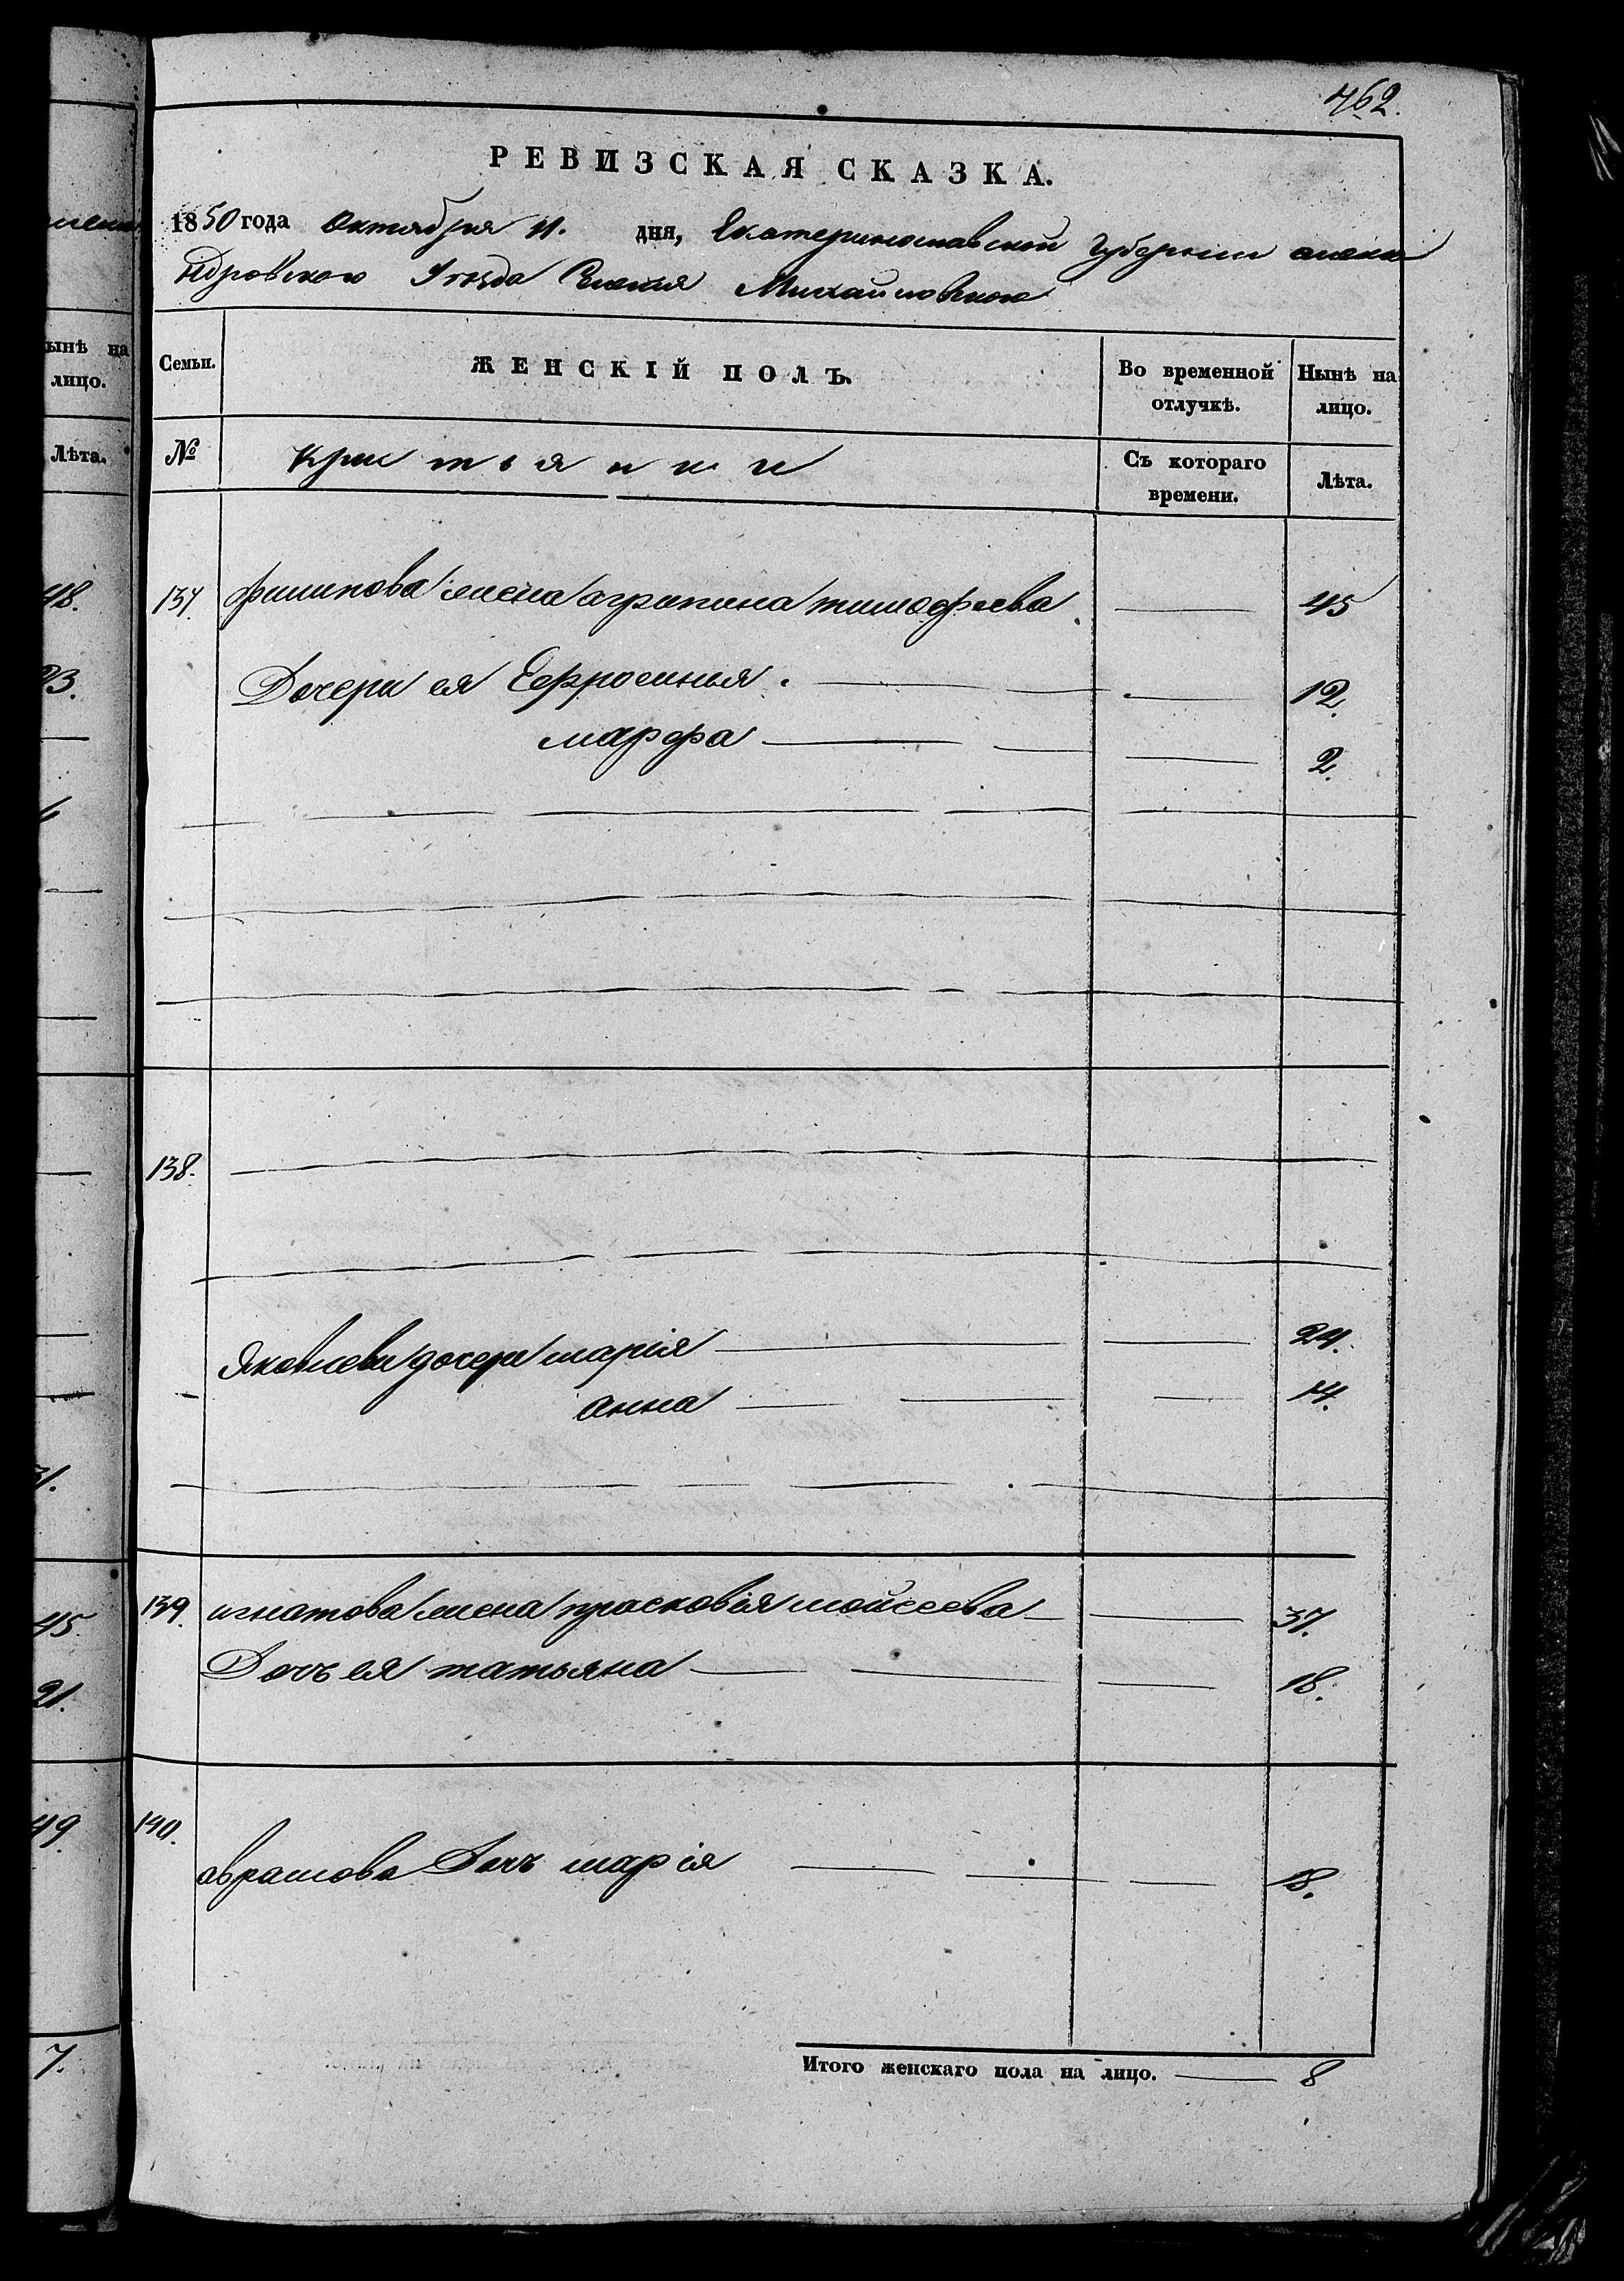 462.
РЕВИЗСКАЯ СКАЗКА.
1850 года Октября 11. дня, Екатеринославской Губернии Алекса
ндровского Уезда Селения Михайловского
Семьи. ЖЕНСКІЙ ПОЛЪ. Во временной отлучкѣ. Нынѣ на лицо.
№ Крестьянки Съ котораго времени. Лѣта.
137. Филипова жена агрипина тимофеева 45
Дочери ея Ефросинья 12.
марфа 2.
138.
Яковлевы дочери марія 24.
анна 14.
139. игнатова жена прасковія мойсеева 37.
Дочь ея татьяна 18.
140.
аврамова Дочь марія 18.
Итого женскаго пола на лицо. 8
ынѣ на
лицо.
Лѣта.
48.
23.
31.
45.
21.
49
7.